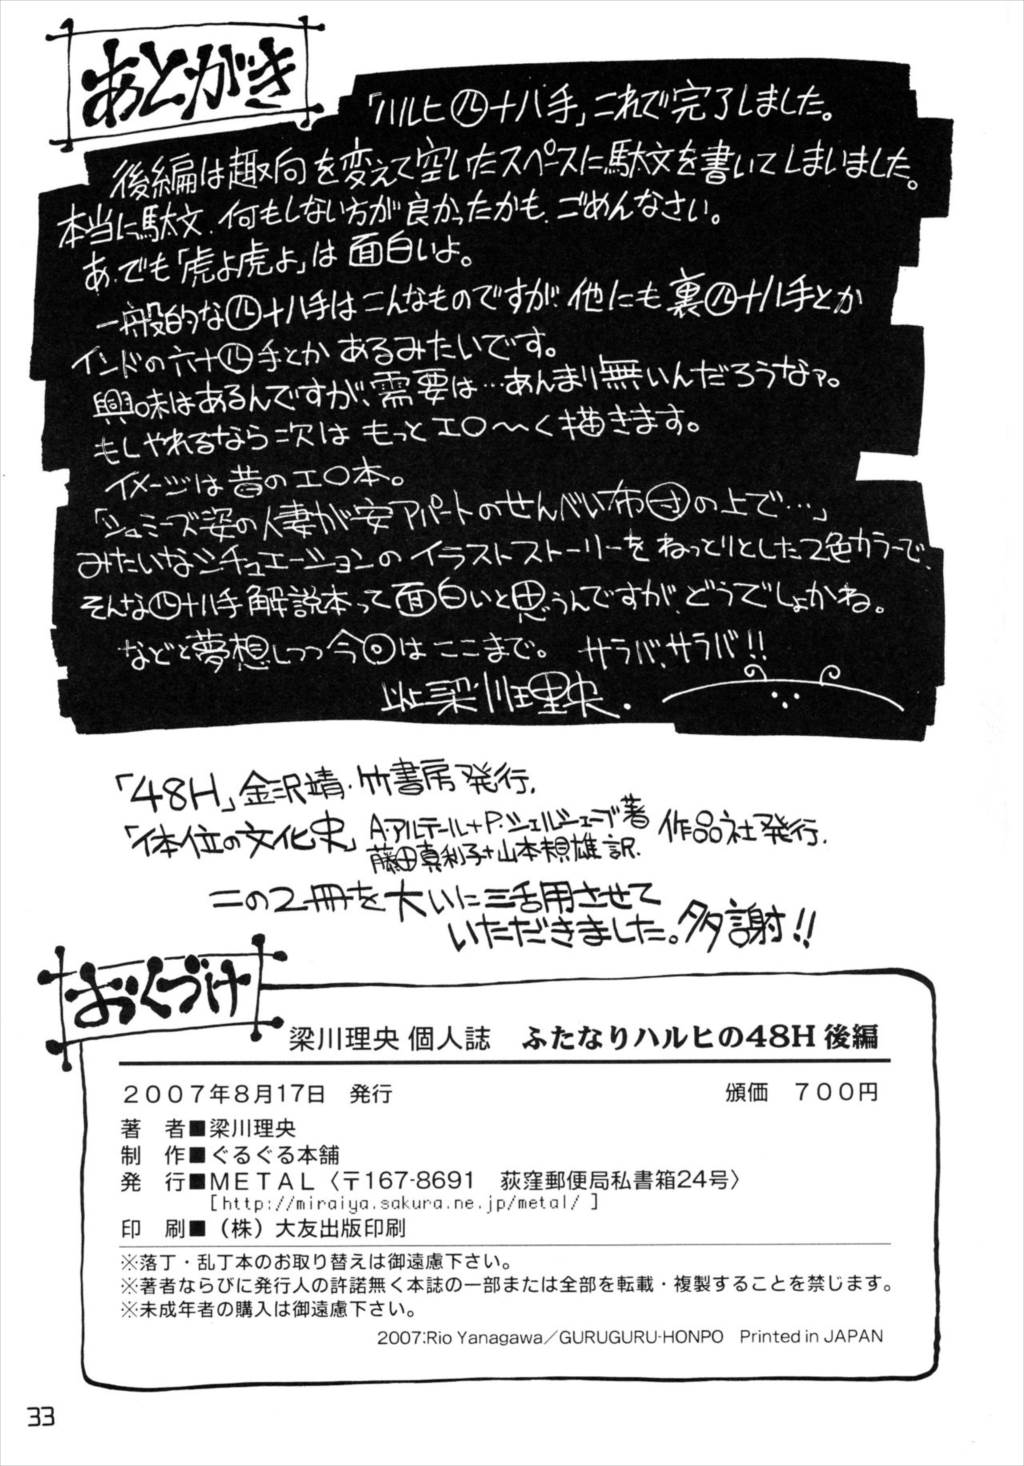 あとがき
「ハルヒ四十八手」これで完了しました。
後編は趣向を変えて空いたスペースに駄文を書いてしまいました。
本当に駄文、何もしない方が良かったかも、ごめんなさい。
あ、でも「虎よ虎よ」は面白いよ。
一般的な四十八手はこんなものですが、他にも裏四十八手とか
インドの六十四手とかあるみたいです。
興味はあるんですが、需要は…あんまり無いんだろうなァ。
もしやれるなら次はもっとエロ〜く描きます。
イメージは昔のエロ本。
「シュミーズ姿の人妻が安アパートのせんべい布団の上で…」
みたいなシチュエーションのイラストストーリーをねっとりとした2色カラーで、
そんな四十八手解説本って面白いと思うんですが、どうでしょかね。
などと夢想しつつ今回はここまで。 サラバ、サラバ!!
以上梁川理央.
「48H」金沢靖・竹書房発行.
「体位の文化史」A・アルテール+P・シェルシェーブ著
藤田真利子+山本規雄訳. 作品社発行.
この2冊を大いに活用させて
いただきました。多謝!!
おくづけ
梁川理央 個人誌 ふたなりハルヒの48H 後編
2007年8月17日 発行 頒価 700円
著 者■梁川理央
制 作■ぐるぐる本舗
発 行■METAL〈〒167-8691 荻窪郵便局私書箱24号〉
[http://miraiya.sakura.ne.jp/metal/ ]
印 刷■(株)大友出版印刷
※落丁・乱丁本のお取り替えは御遠慮下さい。
※著者ならびに発行人の許諾無く本誌の一部または全部を転載・複製することを禁じます。
※未成年者の購入は御遠慮下さい。
2007:Rio Yanagawa/GURUGURU-HONPO Printed in JAPAN
33